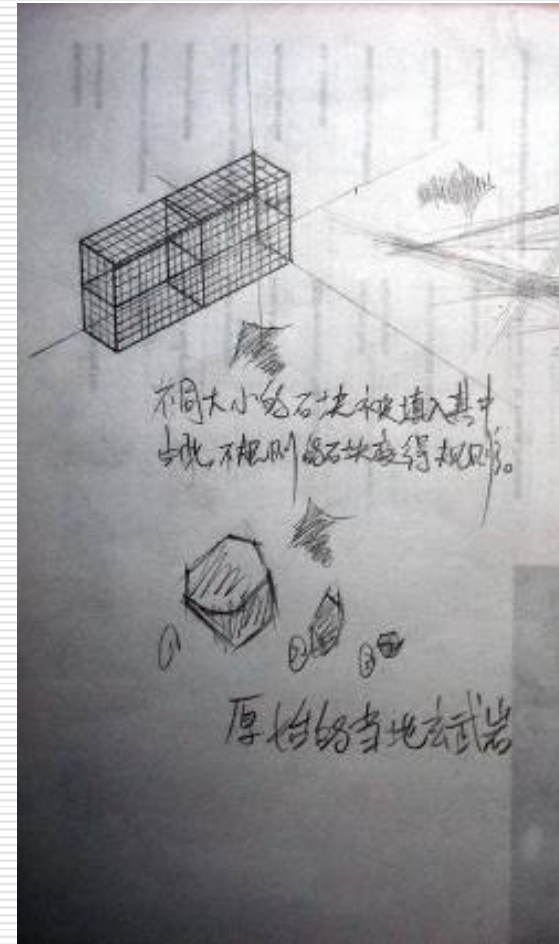 不同大小的石块被填入其中
由此,不规则的石块变得规则。
① ② ③
原始的当地玄武岩